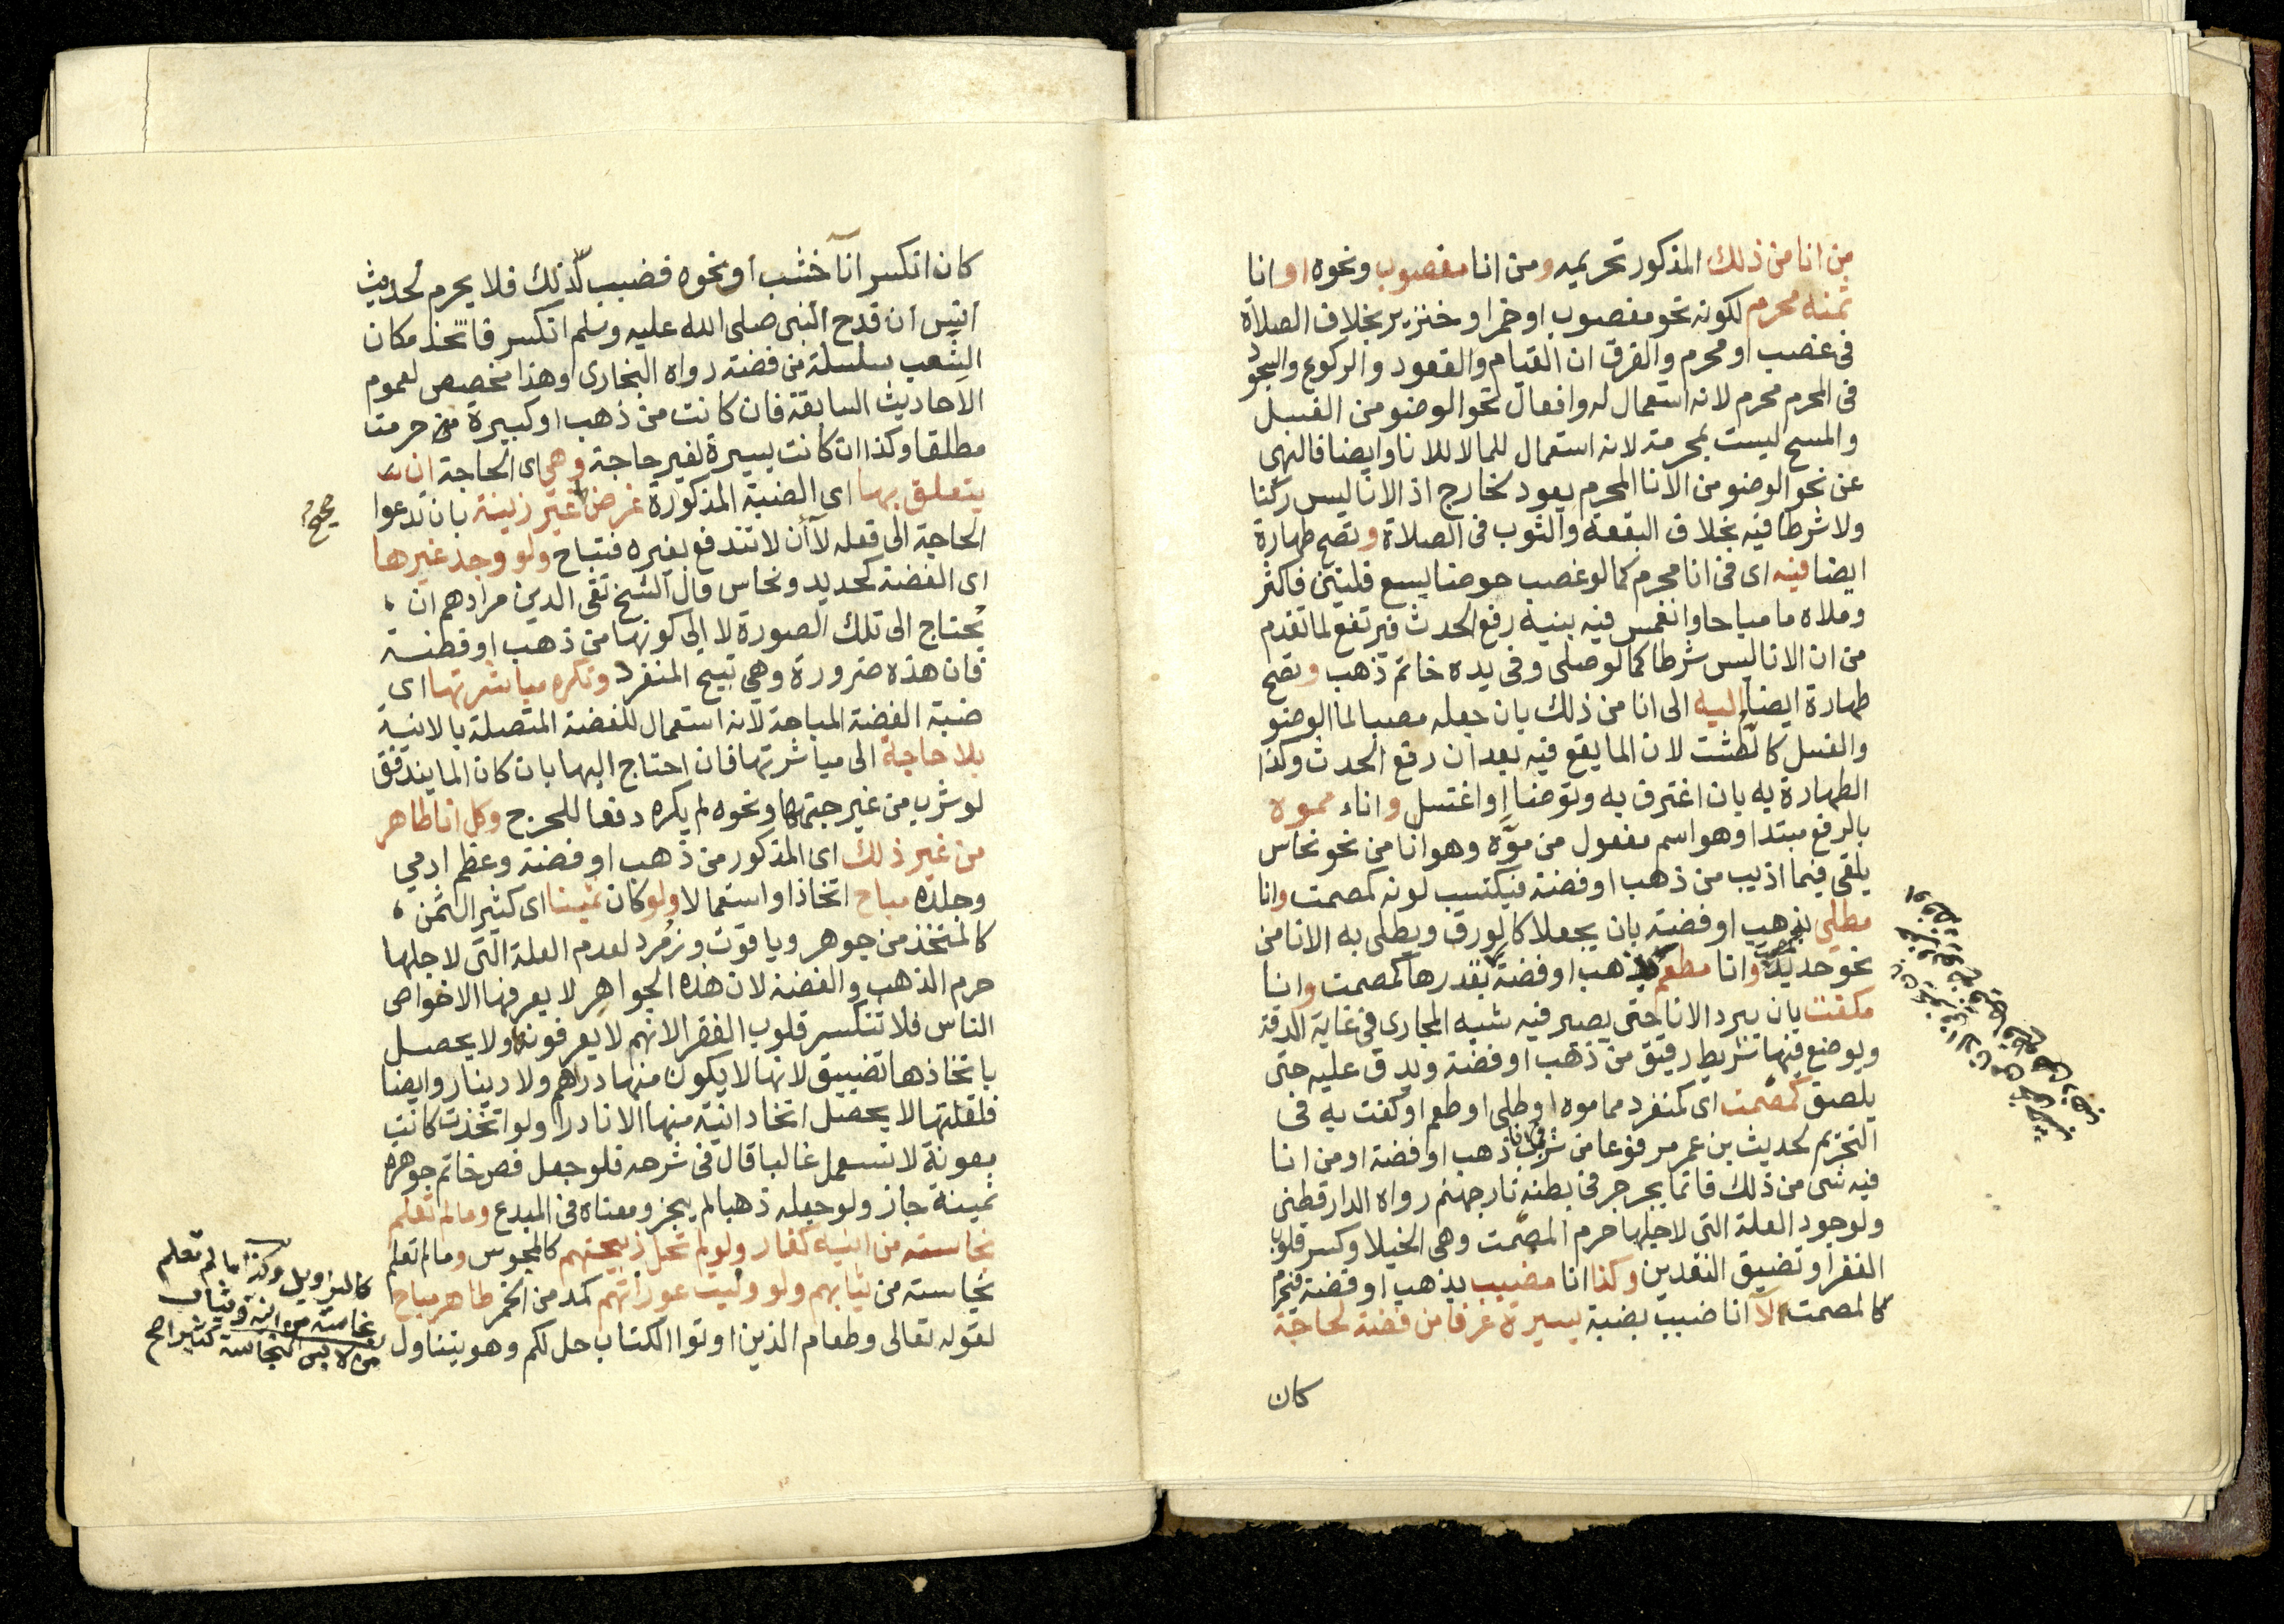 من انا من ذلك المذكور تحريمه ومن انا مغصوب ونحوه او انا
ثمنه محرم لكونه نحو مغصوب او خمر او خنزير بخلاف الصلاة
فى غصب او محرم والفرق ان القيام والقعود والركوع والسجود
فى المحرم محرم لانه استعمال له وافعال نحو الوضو من الغسل
والمسح ليست بمحرمة لانه استعمال للما لا للانا وايضا فالنهى
عن نحو الوضو من الانا المحرم يعود لخارج اذ الانا ليس ركنا
ولا شرطا فيه بخلاف البقعة والثوب فى الصلاة وتصح طهارة
ايضا فيه اى فى انا محرم كما لو غصب حوضا يسع قلتين فاكثر
وملاه ما مباحا وانغمس فيه بنية رفع الحدث فيرتفع لما تقدم
من ان الانا ليس شرطا كما لو صلى وفى يده خاتم ذهب وتصح
طهارة ايضا اليه الى انا من ذلك بان جعله مصبا لما الوضو
والغسل كالطشت لان الما يقع فيه بعد ان رفع الحدث وكذا
الطهارة به بان اغترف به وتوضا او اغتسل واناء مموه
بالرفع مبتدا وهو اسم مفعول من موّه وهو انا من نحو نحاس
يلقى فيما اذيب من ذهب او فضة فيكتسب لونه كمصمت وانا
مطلي بذهب او فضة بان يجعلا كالورق ويطلى به الانا من
نحو حديد وانا مطعم بذهب او فضة بقدرها كمصمت وانا
مكفت بان يبرد الانا حتى يصير فيه شبه المجارى فى غاية الدقة
ويوضع فيها شريط رقيق من ذهب او فضة ويدق عليه حتى
يلصق كمصمت اى كمنفرد مما موه او طلى او طعم او كفت به فى
التحريم لحديث بن عمر مرفوعا من شرب فى انا ذهب او فضة او من انا
فيه شى من ذلك فانما يجرجر فى بطنه نار جهنم رواه الدارقطنى
ولوجود العلة التى لاجلها حرم المصمت وهى الخيلا وكسر قلوب
الفقرا وتضييق النقدين وكذا انا مضبب بذهب او فضة فيحرم
كالمصمت لا انا ضبب بضبة يسيرة عرفا من فضة لحاجة
كان
كان انكسر انا خشب او نحوه فضبب لذلك فلا يحرم لحديث
انس ان قدح النبى صلى الله عليه وسلم انكسر فاتخذ مكان
الشعب سلسلة من فضة رواه البخارى وهذا مخصص لعموم
الاحاديث السابقة فان كانت من ذهب او كبيرة حرمت
مطلقا وكذا ان كانت يسيرة لغير حاجة وهى اى الحاجة ان
يتعلق بها اى الضبة المذكورة غرض غير زينة بان تدعوا
الحاجة الى فعله لا ان لا تندفع بغيره فتباح ولو وجد غيرها
اى الفضة كحديد ونحاس قال الشيخ تقى الدين مرادهم ان
يحتاج الى تلك الصورة لا الى كونها من ذهب او فضة
فان هذه ضرورة وهى تبيح المنفرد وتكره مباشرتها اى
ضبة الفضة المباحة لانه استعمال للفضة المتصلة بالانية
بلا حاجة الى مباشرتها فان احتاج اليها بان كان الما يندفق
لو شرب من غير جهتها ونحوه لم يكره دفعا للحرج وكل انا طاهر
من غير ذلك اى المذكور من ذهب او فضة وعظم ادمي
وجلده مباح اتخاذا واستعمالا ولو كان ثمينا اى كثير الثمن
كالمتخذ من جوهر وياقوت وزمرد لعدم العلة التى لاجلها
حرم الذهب والفضة لان هذه الجواهر لا يعرفها الا خواص
الناس فلا تنكسر قلوب الفقرا لانهم لا يعرفونه ولا يحصل
باتخاذها تضييق لانها لا يكون منها دراهم ولا دينار وايضا
فلقلتها لا يحصل اتخاد انية منها الا نادرا ولو اتخذت كانت
مصونة لا تستعمل غالبا قال فى شرحه فلو جعل فص خاتم جوهرة
ثمينة جاز ولو جعله ذهبا لم يجز ومعناه فى المبدع وما لم تعلم
نجاسته من انية كفار ولو لم تحل ذبيحتهم كالمجوس وما لم تعلم
نجاسته من ثيابهم ولو وليت عوراتهم كمد من الخمر طاهر مباح
لقوله تعالى وطعام الذين اوتوا الكتاب حل لكم وهو يتناول
صح
كالسراويل وكذا ما لم تعلم
نجاسته من انية وثياب
من لابس النجاسة كثيرا صح